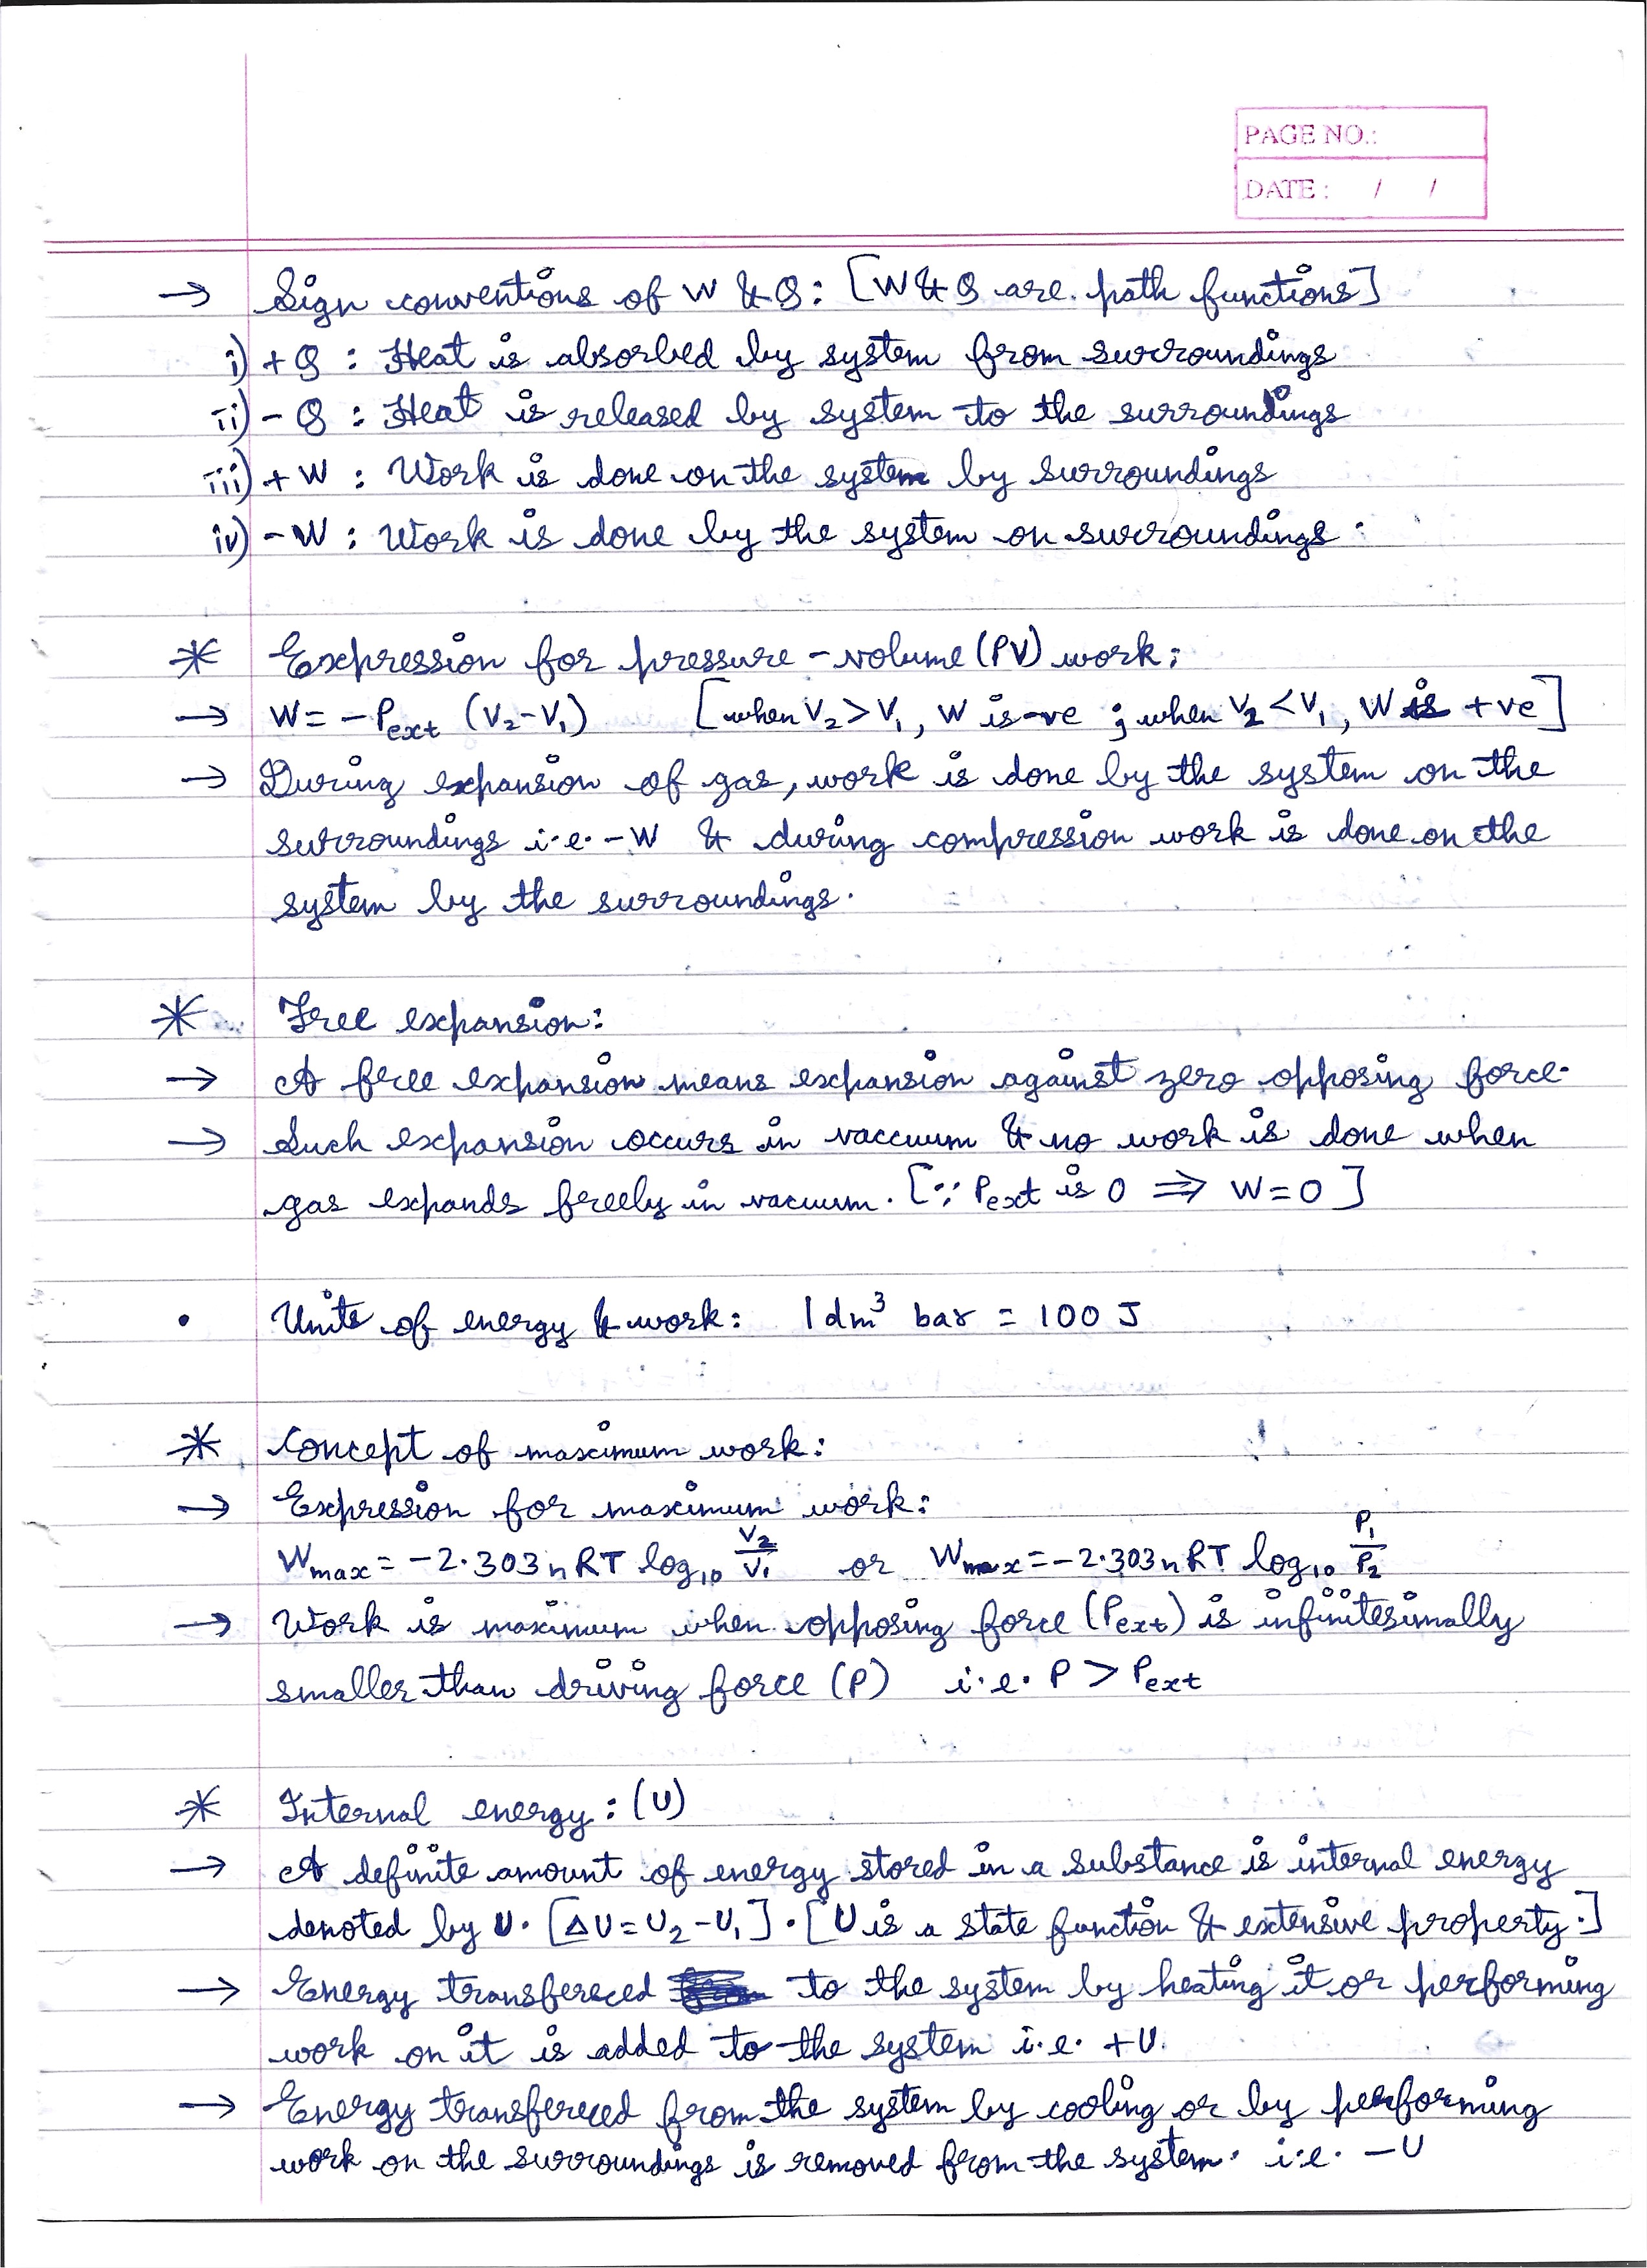 PAGE NO.:
DATE : / /
→ Sign conventions of W & Q : [W & Q are path functions]
i) + Q : Heat is absorbed by system from surroundings
ii) - Q : Heat is released by system to the surroundings
iii) + W : Work is done on the system by surroundings
iv) - W : Work is done by the system on surroundings .
* Expression for pressure - volume (PV) work :
→ W = - Pext (V₂ - V₁) [when V₂ > V₁, W is -ve ; when V₂ < V₁, W is +ve]
→ During expansion of gas, work is done by the system on the
surroundings i.e. - W & during compression work is done on the
system by the surroundings.
* Free expansion :
→ A free expansion means expansion against zero opposing force.
→ Such expansion occurs in vaccuum & no work is done when
gas expands freely in vacuum. [∵ Pext is 0 ⇒ W = 0 ]
• Units of energy & work : 1 dm³ bar = 100 J
* Concept of maximum work :
→ Expression for maximum work :
Wmax = -2.303 n RT log₁₀ V₂/V₁ or Wmax = -2.303 n RT log₁₀ P₁/P₂
→ Work is maximum when opposing force (Pext) is infinitesimally
smaller than driving force (P) i.e. P > Pext
* Internal energy : (U)
→ A definite amount of energy stored in a substance is internal energy
denoted by U. [ΔU = U₂ - U₁] . [U is a state function & extensive property.]
→ Energy transfereced to the system by heating it or performing
work on it is added to the system i.e. +U.
→ Energy transfereced from the system by cooling or by performing
work on the surroundings is removed from the system. i.e. - U